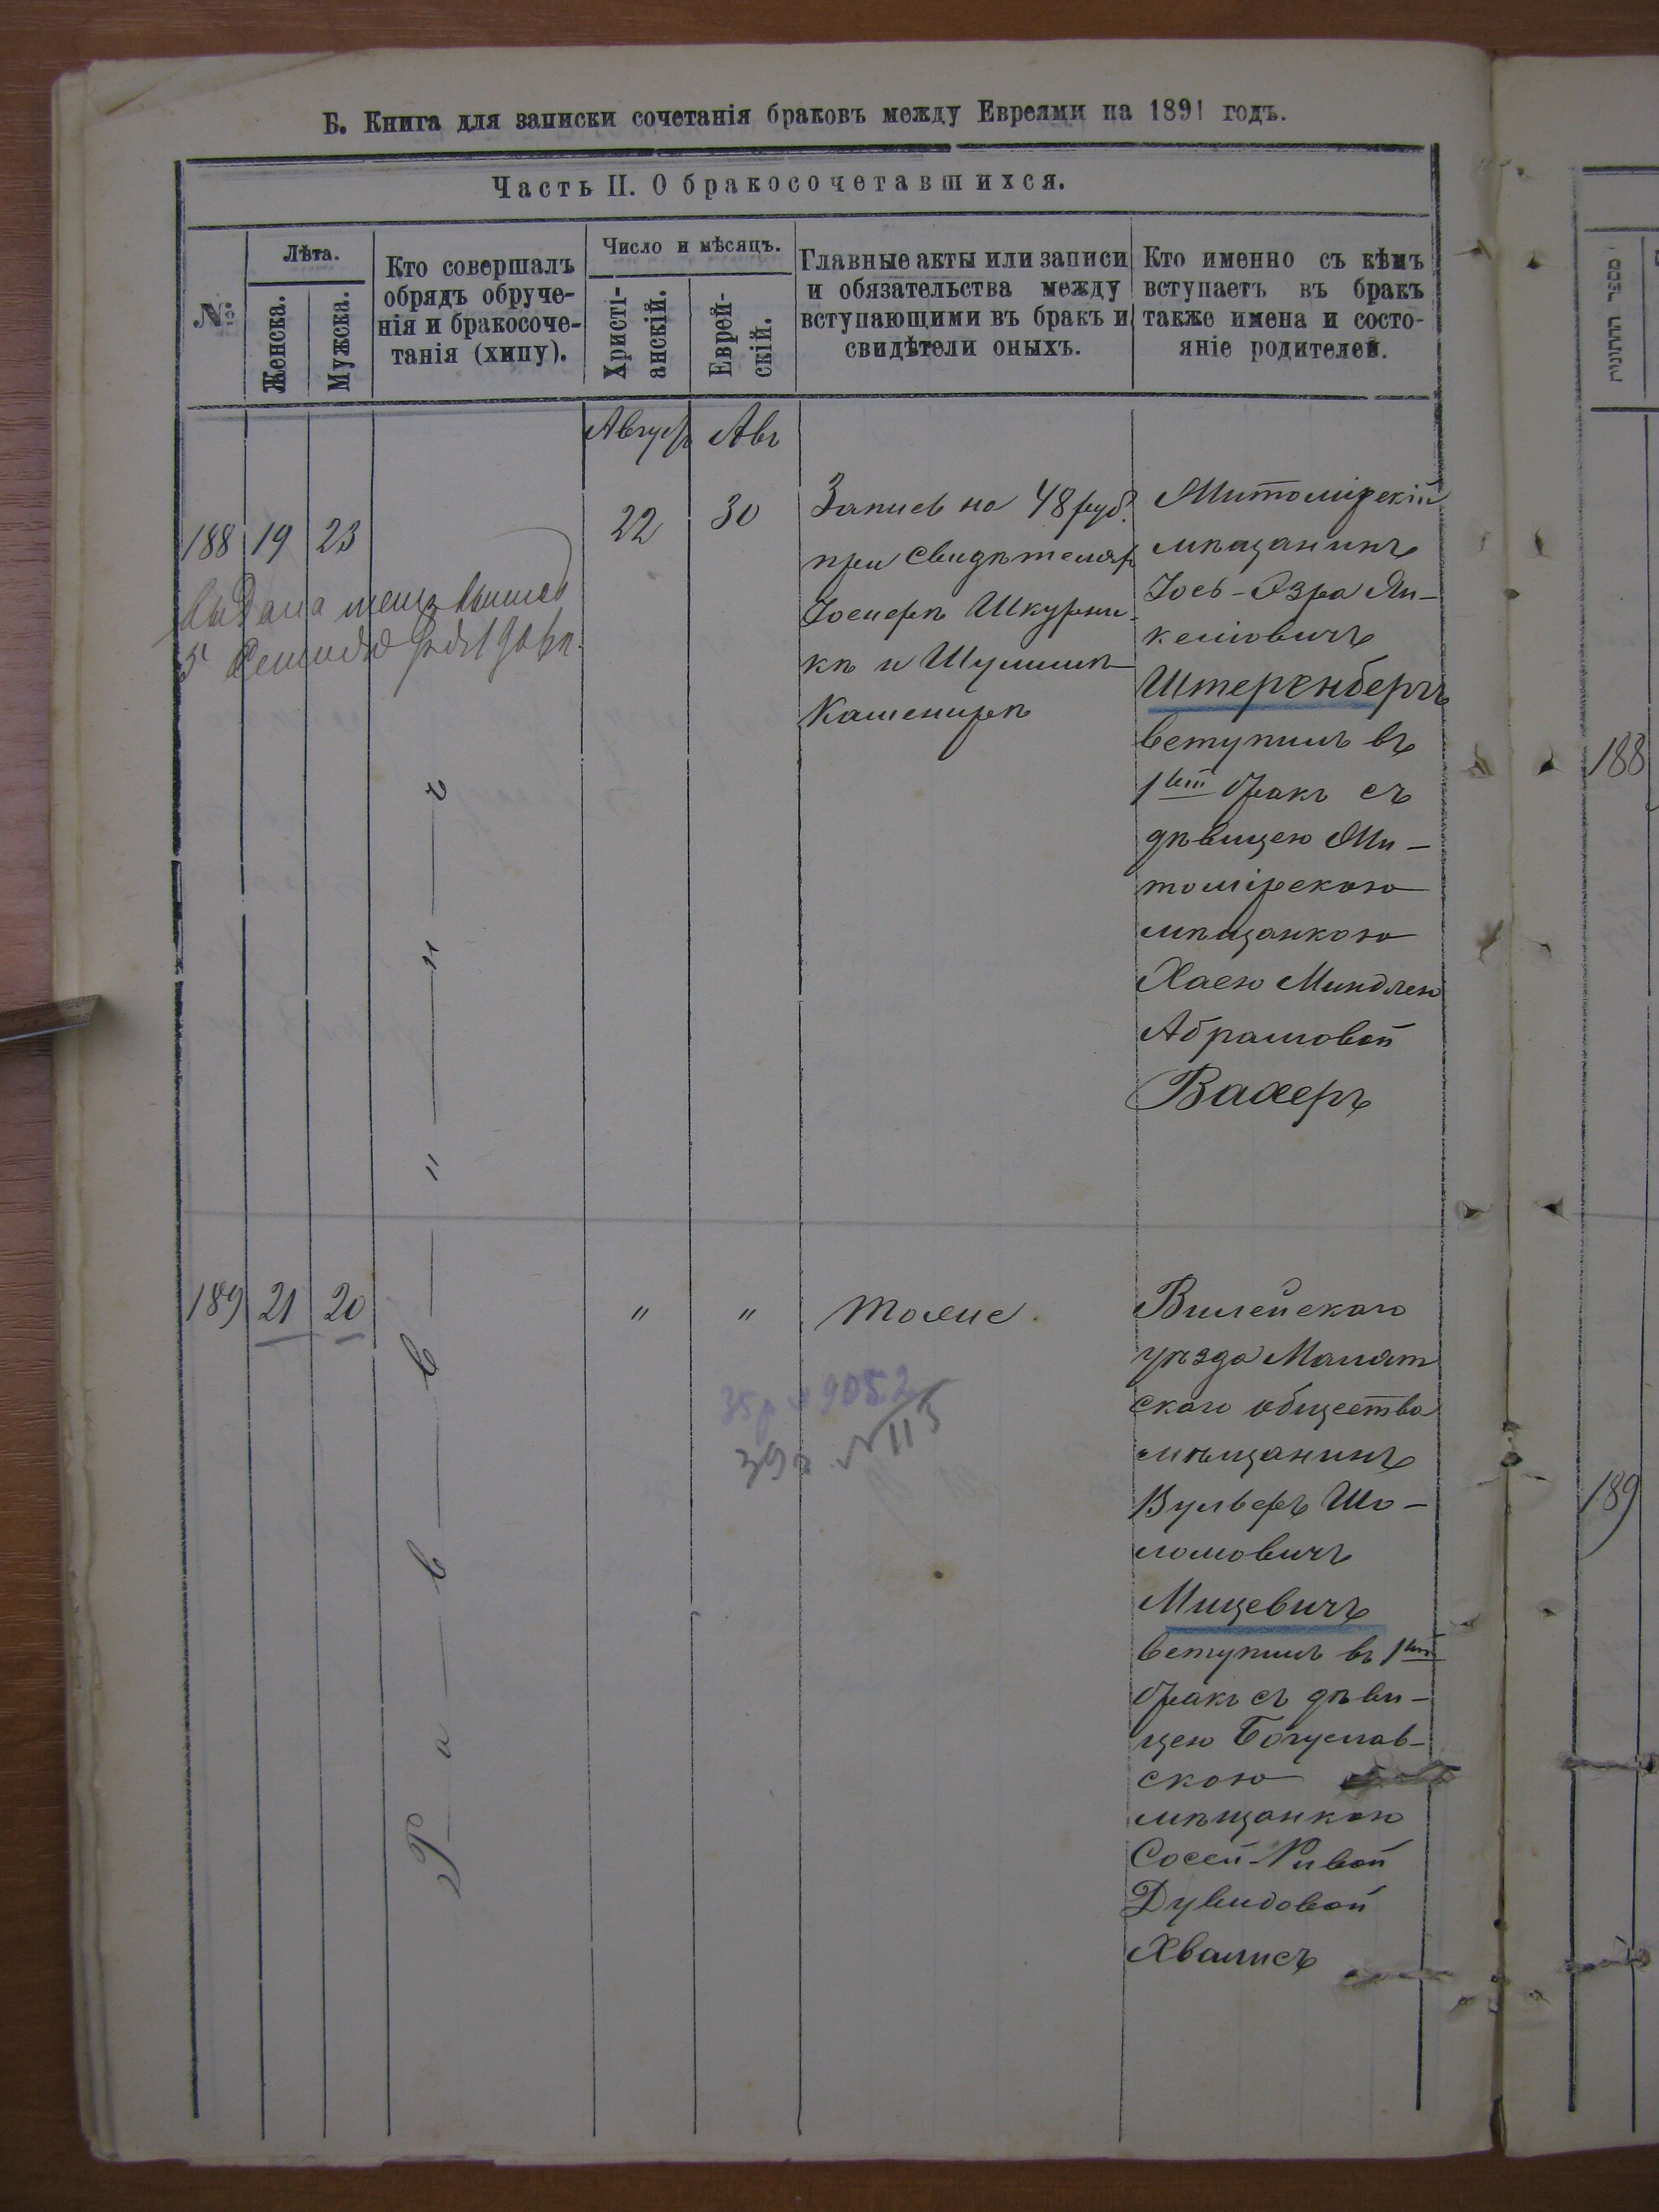 Б. Книга для записки сочетанія браковъ между Евреями на 1891 годъ.
Часть II. О бракосочетавшихся.
№
Лѣта.
Женска.
Мужска.
Кто совершалъ
обрядъ обруче-
нія и бракосоче-
танія (хипу).
Число и мѣсяцъ.
Христі-
анскій.
Еврей-
скій.
Главные акты или записи
и обязательства между
вступающими въ бракъ и
свидѣтели оныхъ.
Кто именно съ кѣмъ
вступаетъ въ бракъ
также имена и состо-
яніе родителей.
Августъ
Авъ
188
19
23
22
30
Запись на 48 руб.
при свидѣтеляхъ
Іосифѣ Шкурни-
кѣ и Шулимѣ
Кашепирѣ
Житомірскій
мѣщанинъ
Іось-Азра Ян-
келіовичъ
Штеренбергъ
вступилъ въ
1вый бракъ съ
дѣвицею Жи-
томірскою
мѣщанкою
Хаею Миндлею
Абрамовой
Вахеръ
выдана
5
Р а в в и н ъ
189
21
20
"
"
Тоже
35 р № 9052
39 г. № 115
Вилейскаго
уѣзда Молят
скаго общества
мѣщанинъ
Вульфъ Шо-
ломовичъ
Мицевичъ
вступилъ въ 1вый
бракъ съ дѣви-
цею Богуслав-
скою
мѣщанкою
Сосей-Ривой
Дувидовой
Хвалисъ
מספר החתונות
188
189